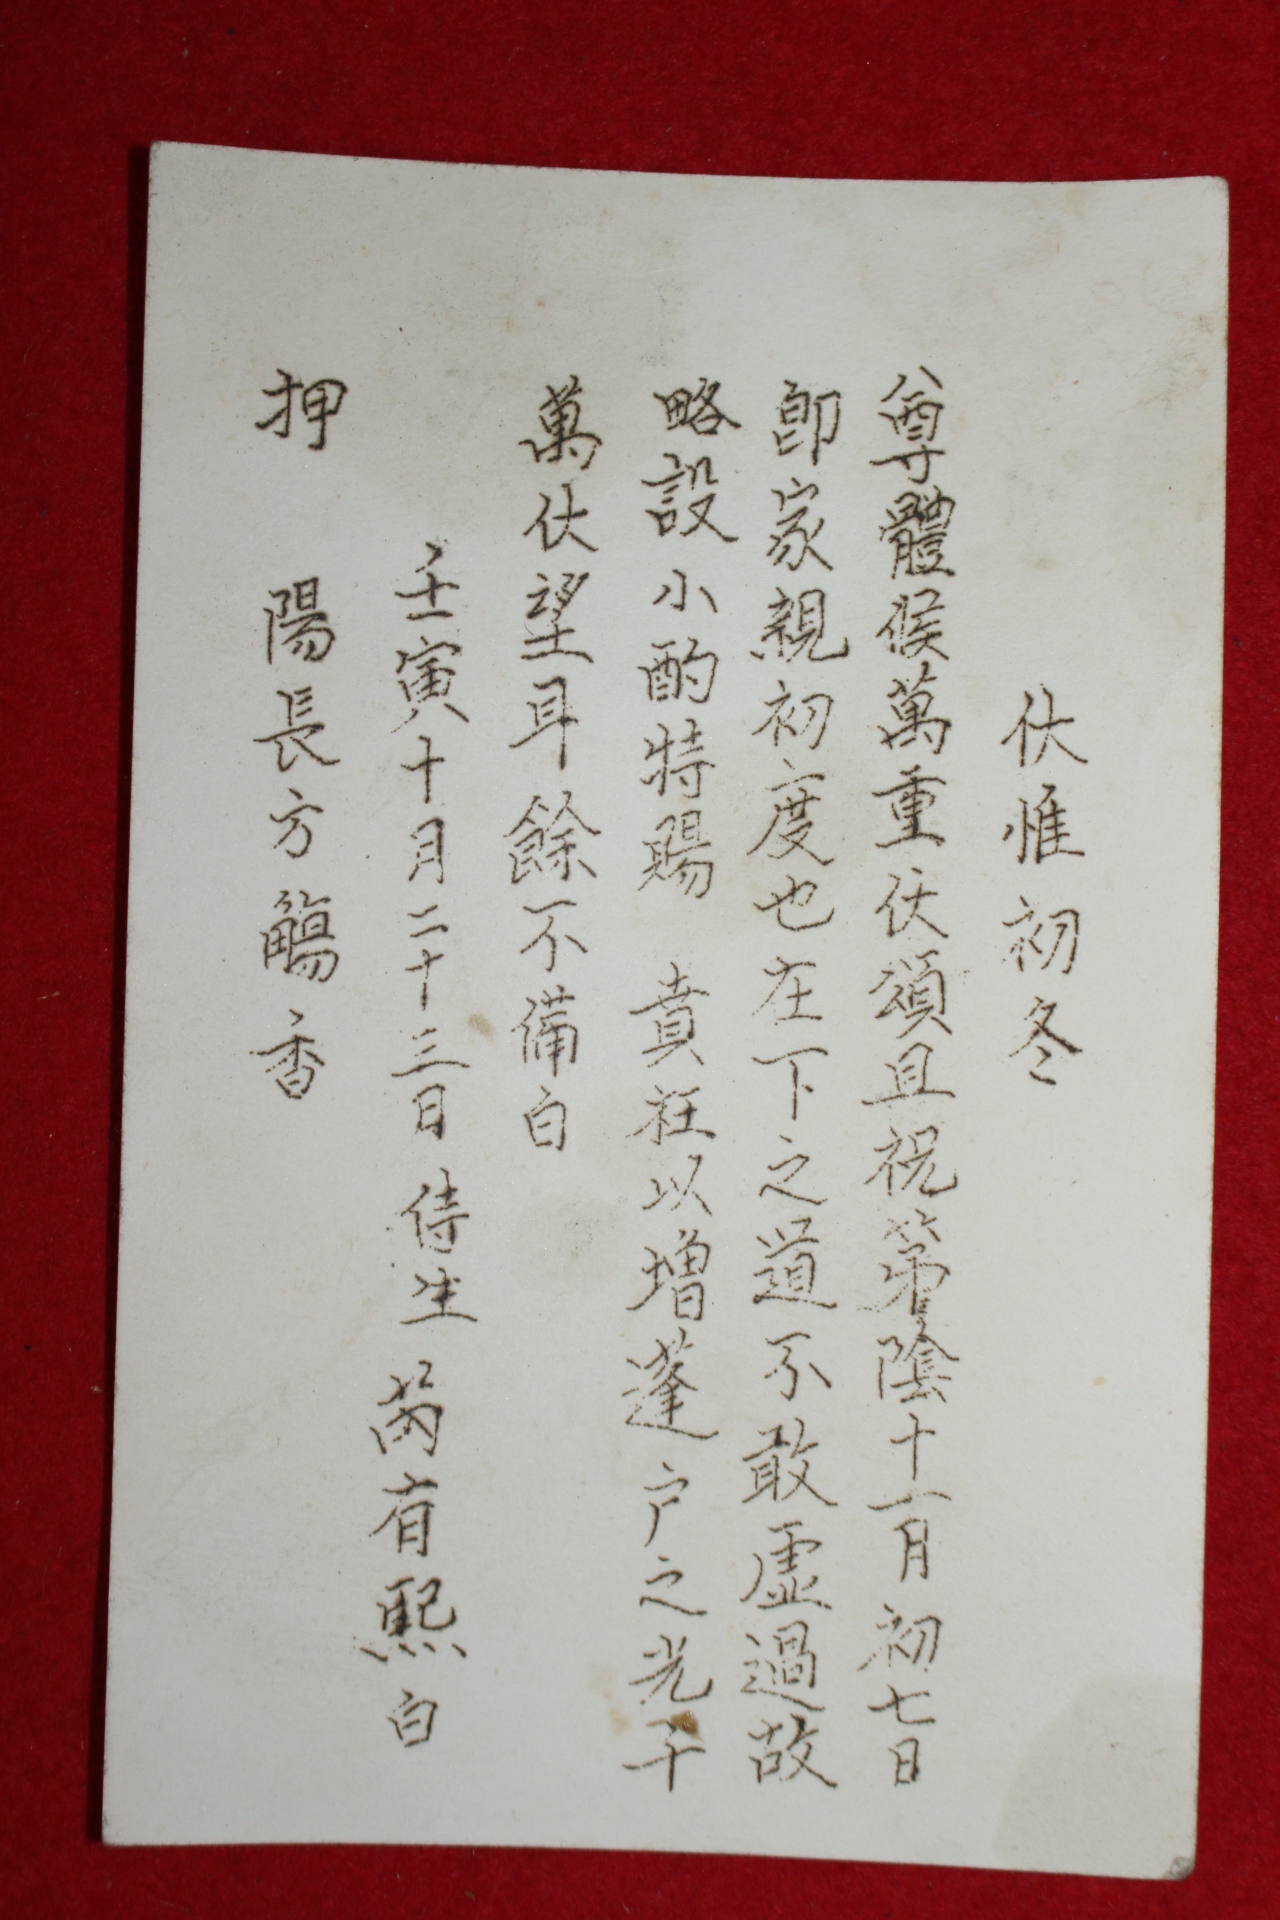 伏惟初冬
尊體候萬重伏頌且祝第陰十一月初七日
卽家親初度也在下之道不敢虛過故
略設小酌特賜 賁枉以增蓬户之光千
萬伏望耳餘不備白
壬寅十月二十三日侍生 芮有熙白
押 陽長方觴香